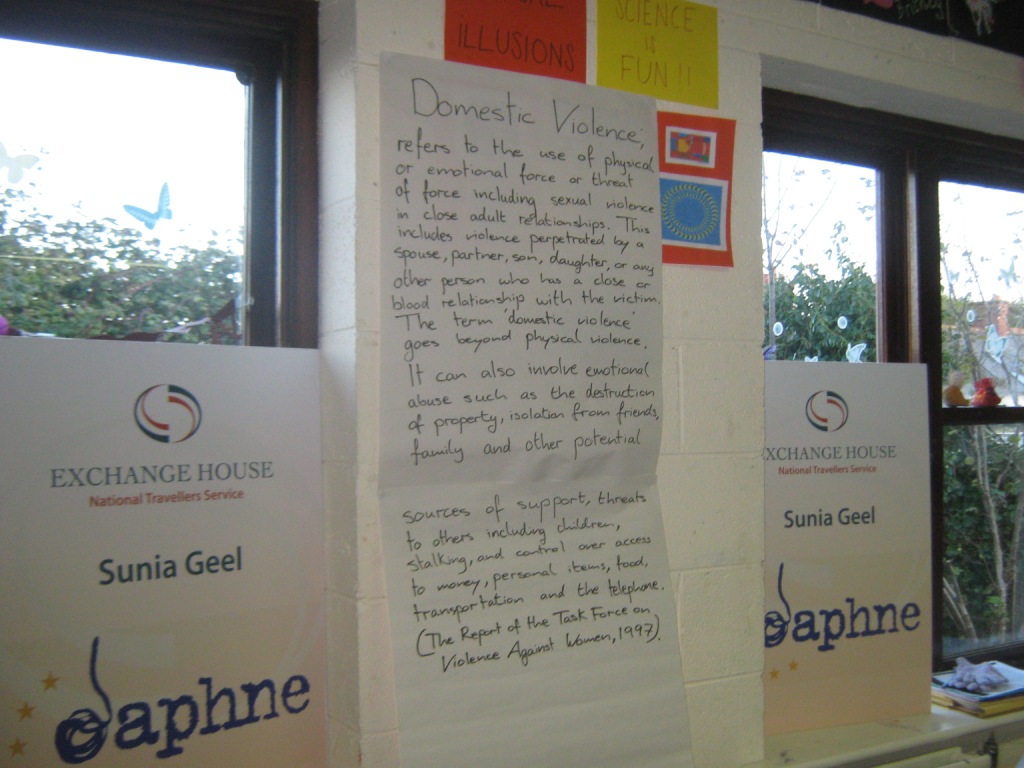 ILLUSIONS
SCIENCE
IS
FUN !!
Domestic Violence;
refers to the use of physical
or emotional force or threat
of force including sexual violence
in close adult relationships. This
includes violence perpetrated by a
spouse, partner, son, daughter, or any
other person who has a close or
blood relationship with the victim.
The term 'domestic violence'
goes beyond physical violence.
It can also involve emotional
abuse such as the destruction
of property, isolation from friends,
family and other potential
sources of support, threats
to others including children,
stalking, and control over access
to money, personal items, food,
transportation and the telephone.
(The Report of the Task Force on
Violence Against Women, 1997).
EXCHANGE HOUSE
National Travellers Service
Sunia Geel
daphne
EXCHANGE HOUSE
National Travellers Service
Sunia Geel
daphne